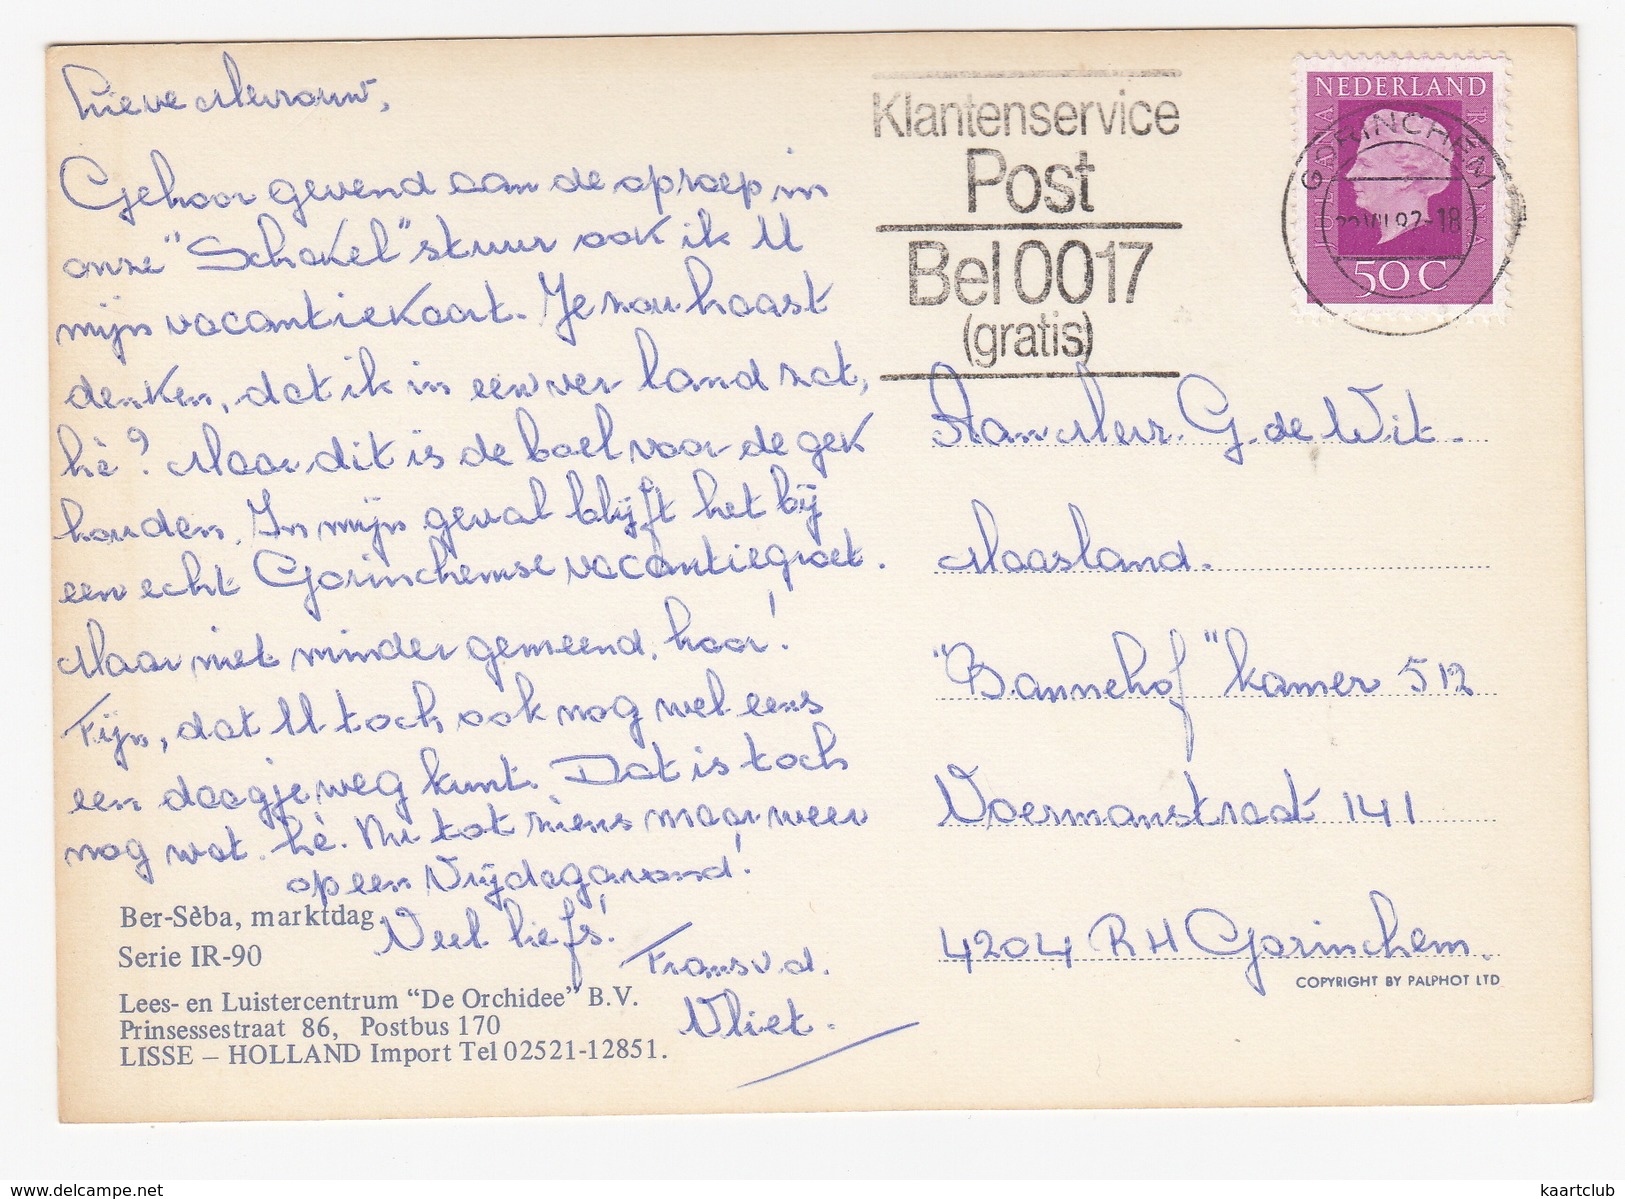 Lieve Mevrouw,
Gehoor gevend aan de oproep in
onze "Schakel" stuur ook ik U
mijn vacantiekaart. Je zou haast
denken, dat ik in een ver land zat,
hè? Maar dit is de boel voor de gek
houden. In mijn geval blijft het bij
een echt Gorinchemse vacantiegroet.
Maar niet minder gemeend, hoor!
Fijn, dat U toch ook nog wel eens
een daagje weg kunt. Dat is toch
nog wat. hè. Nu tot ziens maar weer
op een Vrijdagavond!
Veel liefs!
Frans v.d.
Vliet.
Ber-Sèba, marktdag
Serie IR-90
Lees- en Luistercentrum "De Orchidee" B.V.
Prinsessestraat 86, Postbus 170
LISSE – HOLLAND Import Tel 02521-12851.
Klantenservice
Post
Bel 0017
(gratis)
NEDERLAND
JULIANA REGINA
50 C
GORINCHEM
Aan Mevr. G. de Wit.
Maasland.
"Bannehof" kamer 512
Voermanstraat 141
4204 RH Gorinchem.
COPYRIGHT BY PALPHOT LTD
http://www.delcampe.net
kaartclub